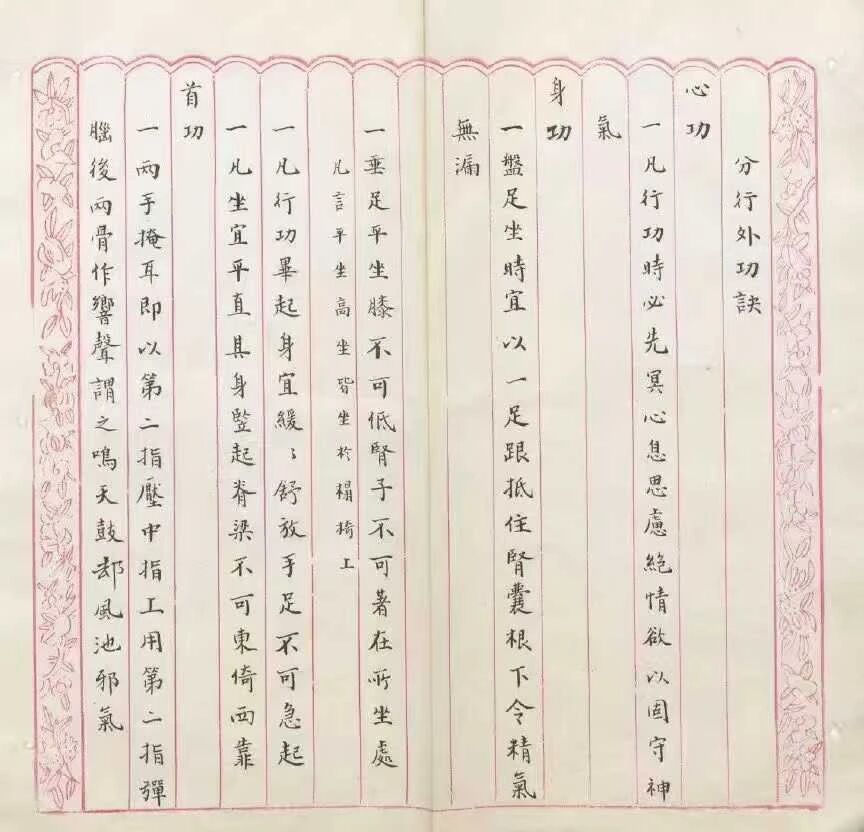 分行外功訣
心功
一凡行功時必先冥心息思慮絕情欲以固守神
氣
身功
一盤足坐時宜以一足跟抵住腎囊根下令精氣
無漏
一垂足平坐膝不可低腎子不可著在所坐處
凡言平坐高坐皆坐於榻椅工
一凡行功畢起身宜緩〻舒放手足不可急起
一凡坐宜平直其身豎起脊梁不可東倚西靠
首功
一兩手掩耳即以第二指壓中指工用第二指彈
腦後兩骨作響聲謂之鳴天鼓却風池邪氣